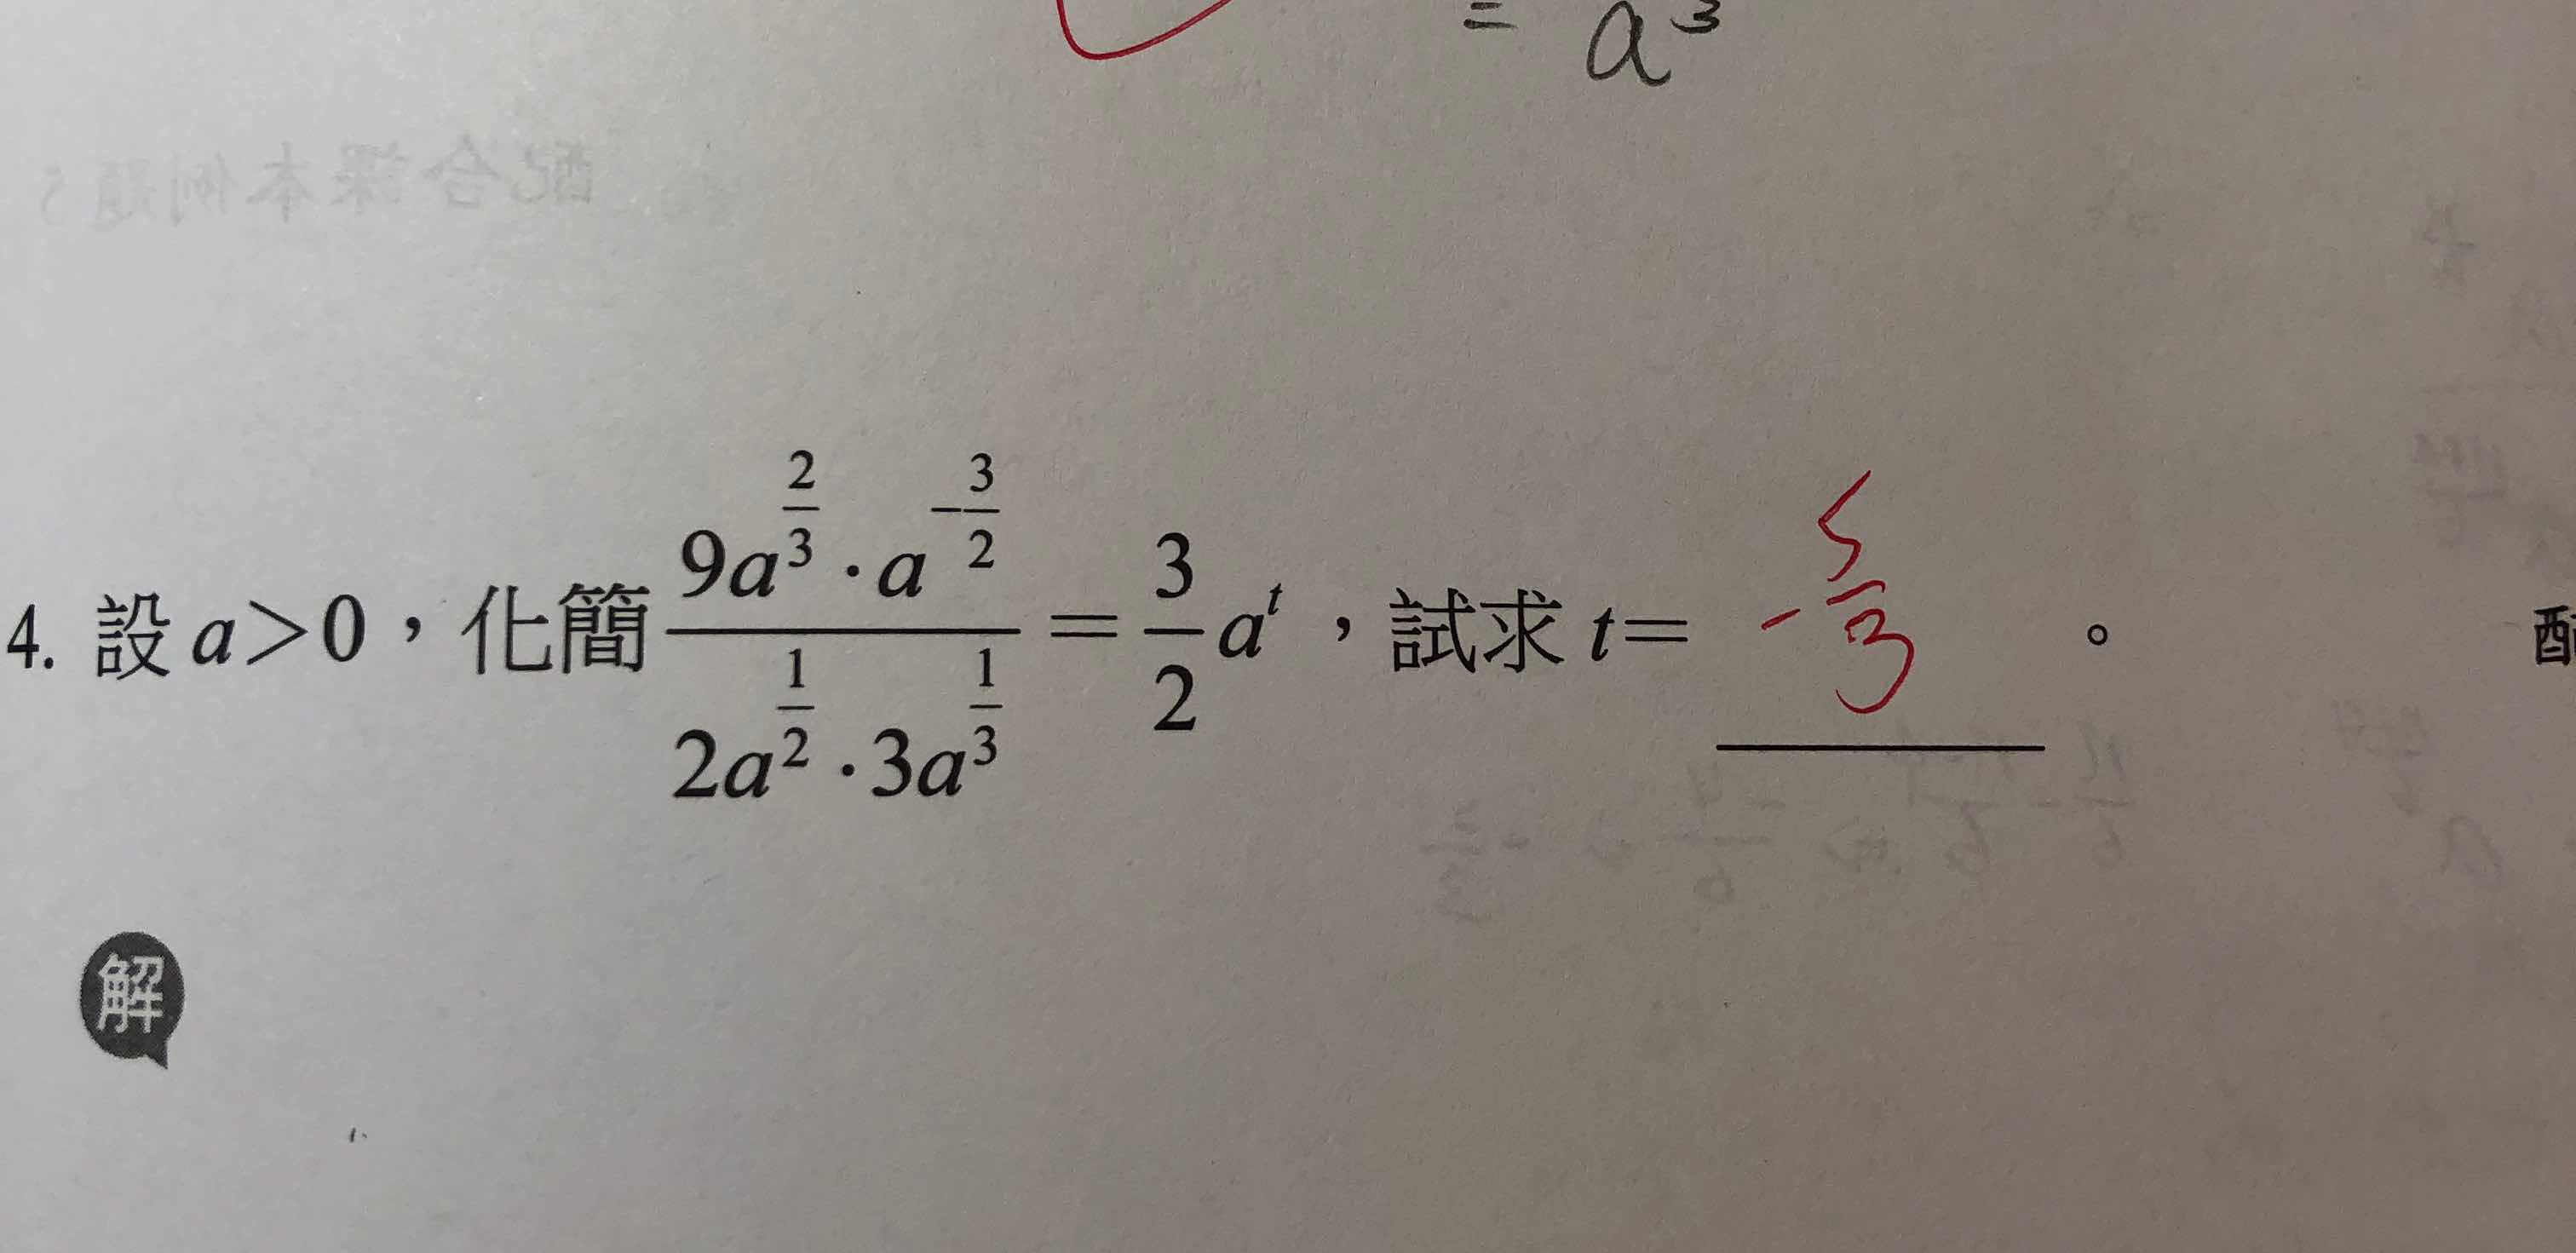 = a³
4. 設 a>0，化簡 \frac{9a^{\frac{2}{3}}·a^{-\frac{3}{2}}}{2a^{\frac{1}{2}}·3a^{\frac{1}{3}}} = \frac{3}{2}a^t，試求 t= -\frac{5}{3}。
解